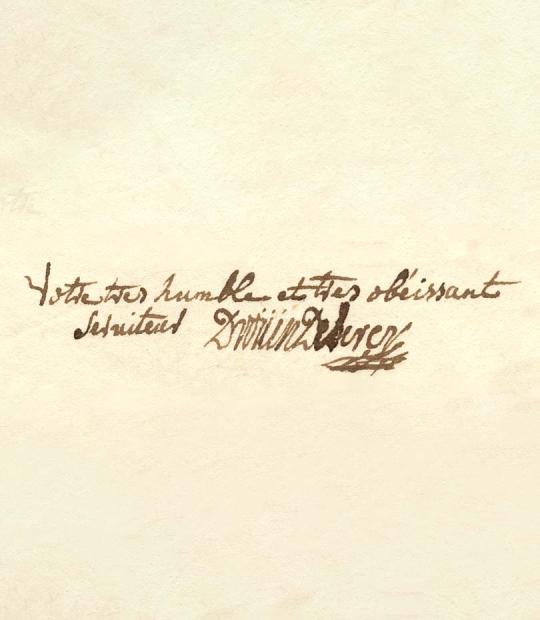 Votre tres humble et tres obéissant
serviteur Drouin Debercy